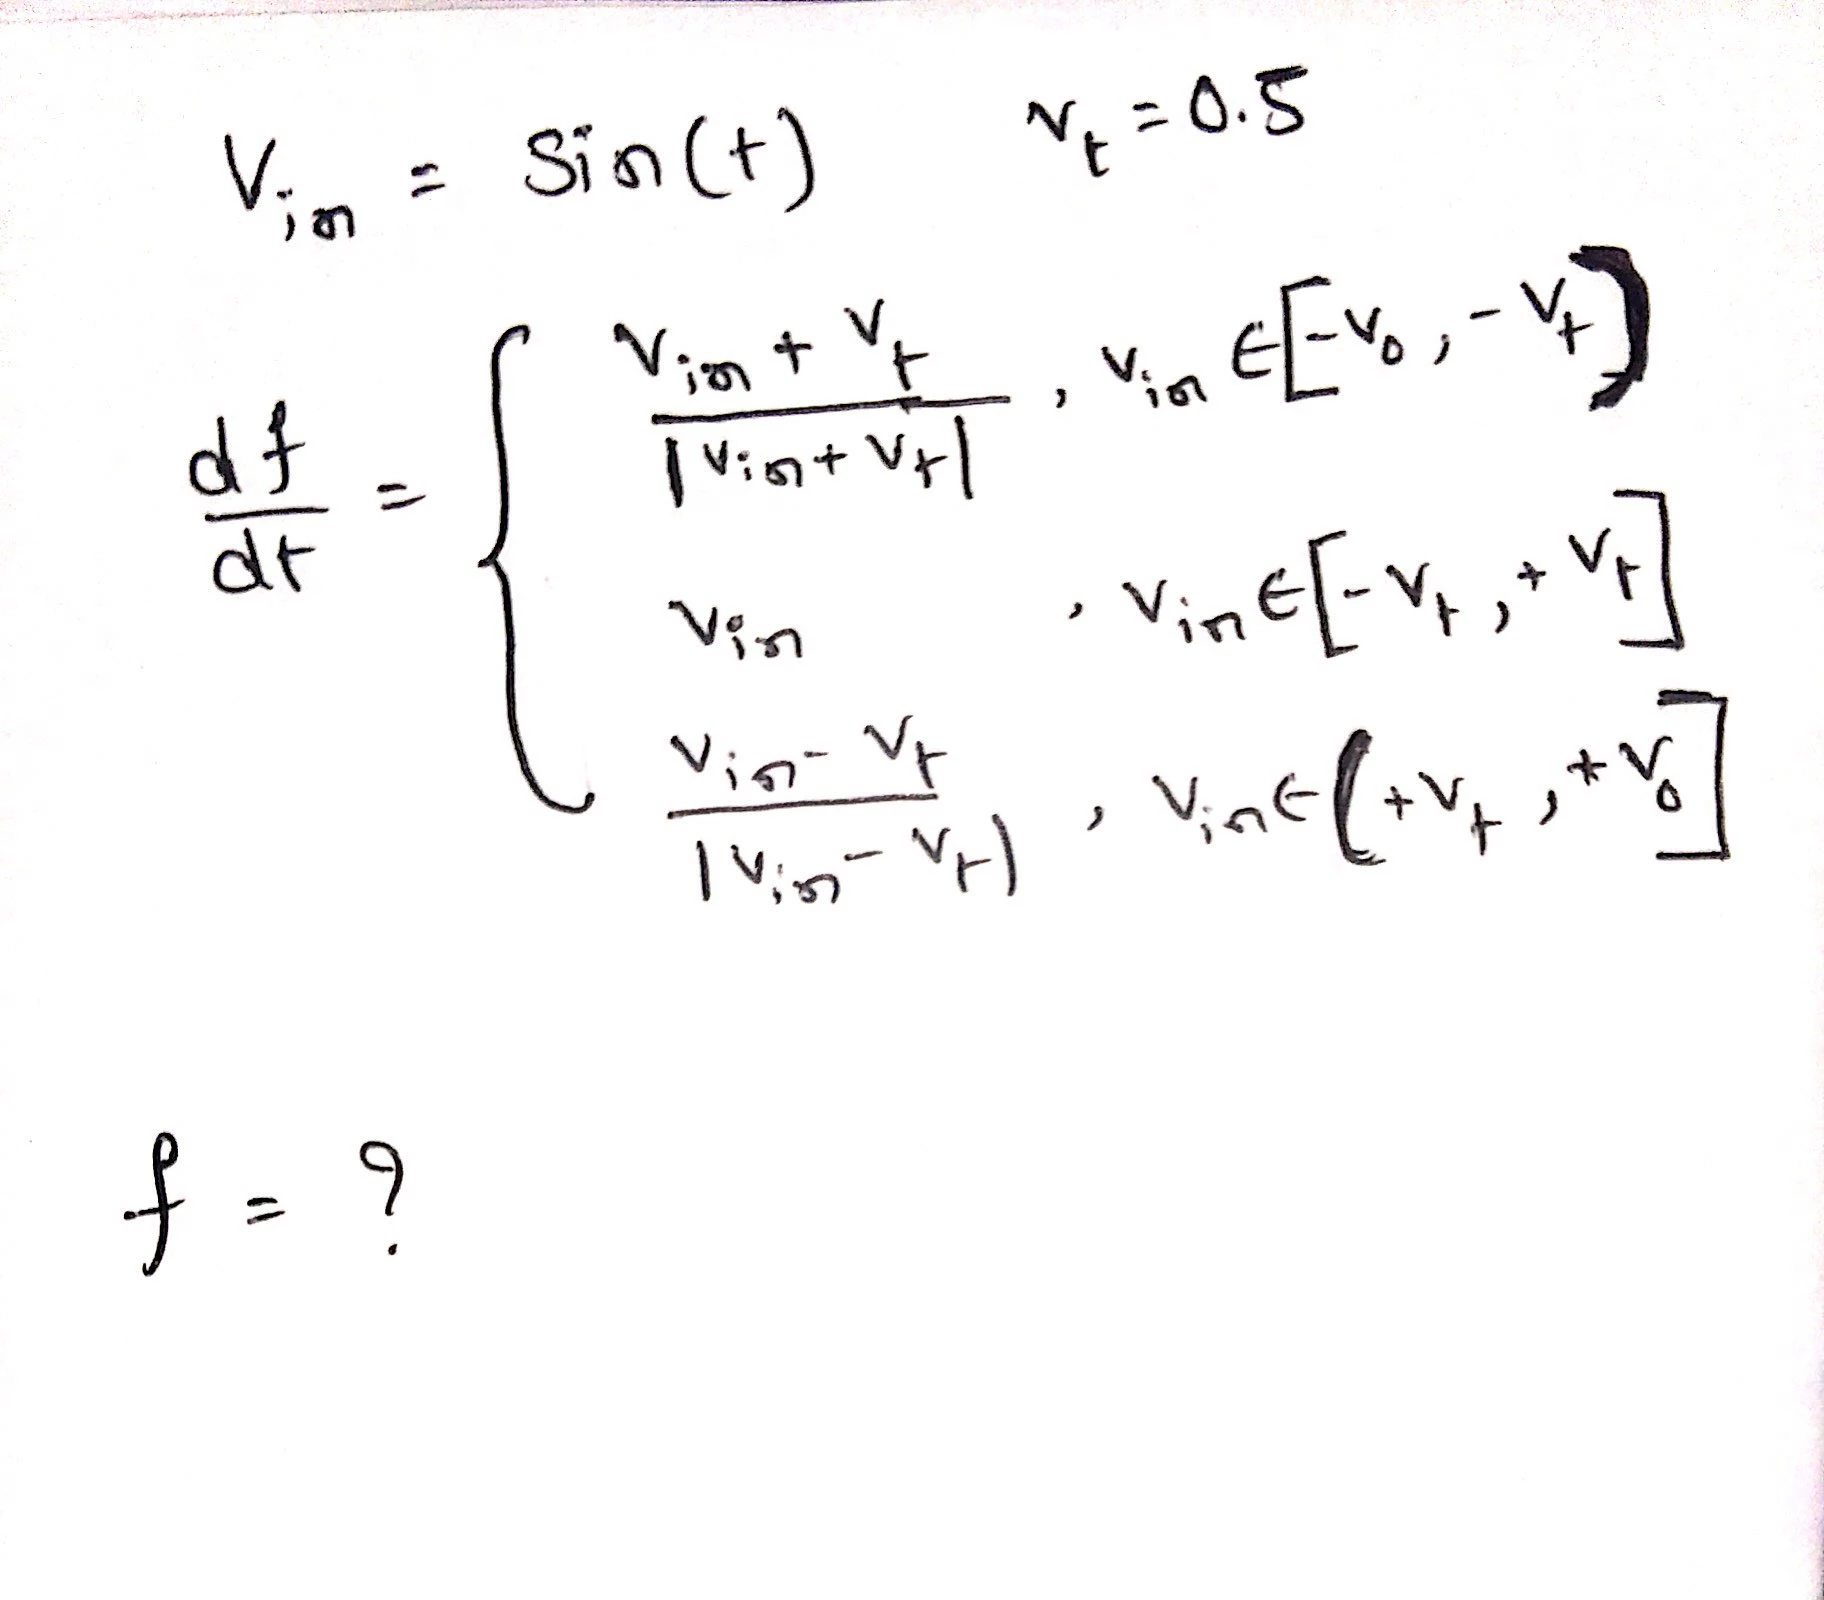 V_in = Sin(t)    V_t = 0.5
df/dt = {
(V_in + V_t) / |V_in + V_t| , V_in ∈ [-V_0 , -V_t)
V_in , V_in ∈ [-V_t , +V_t]
(V_in - V_t) / |V_in - V_t| , V_in ∈ (+V_t , +V_0]
f = ?